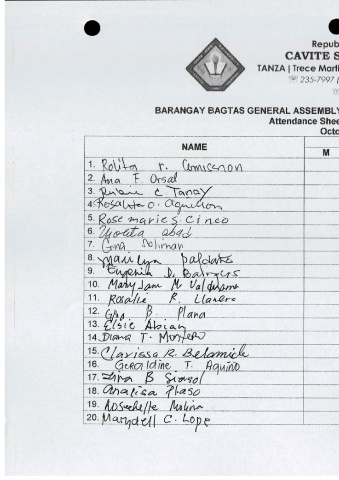 Repub
CAVITE S
TANZA | Trece Marti
235-7997 (
BARANGAY BAGTAS GENERAL ASSEMBLY
Attendance Shee
Octo
NAME
M
1. Rolita r.
2. Ana F. Orsal
3. C. Tanay
4. Rosalita O.
5. Rosemarie S. Cinco
6. Violeta abad
7. Gina Soliman
8. Marilyn
9. Eugenia D.
10. Mary Jam M
11. Rosalie R. Llanera
12. Gra B. Plana
13. Elsie Abian
14. Diana T. Montero
15. Clarissa R. Belamide
16. Geraldine T. Aquino
17. B
18. Analisa
19. Rosechelle Molina
20. Marydell C. Lope